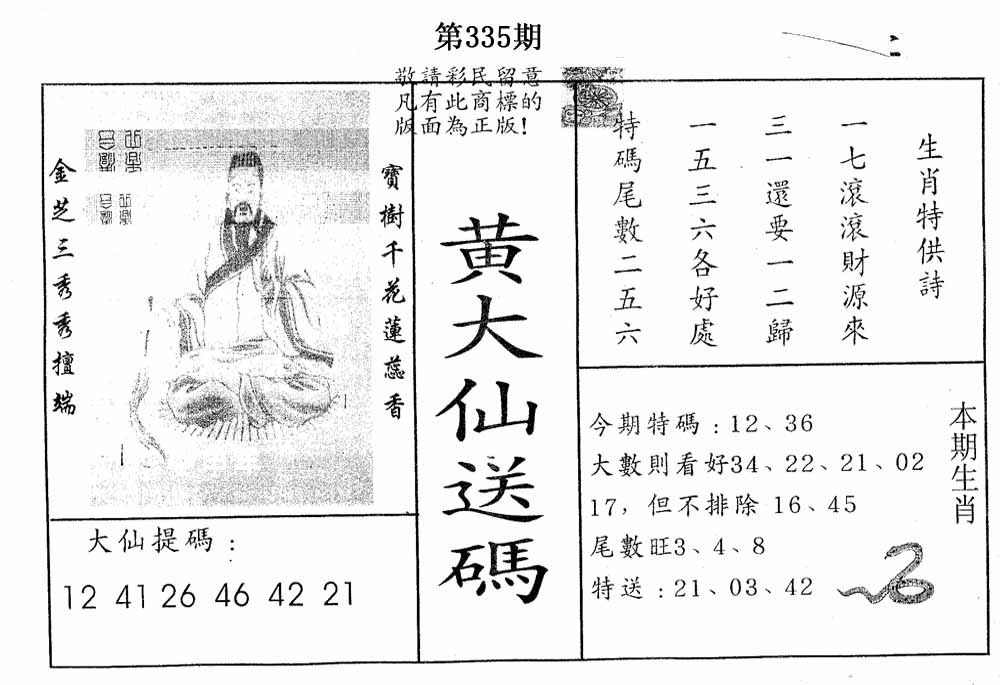 第335期
敬請彩民留意
凡有此商標的
版面為正版！
生肖特供詩
一七滾滾財源來
三一還要一二歸
一五三六各好處
特碼尾數二五六
黃大仙送碼
寶樹千花蓮蕊香
金芝三秀秀擅端
大仙提碼：
12 41 26 46 42 21
本期生肖
今期特碼：12、36
大數則看好34、22、21、02
17，但不排除 16、45
尾數旺3、4、8
特送：21、03、42